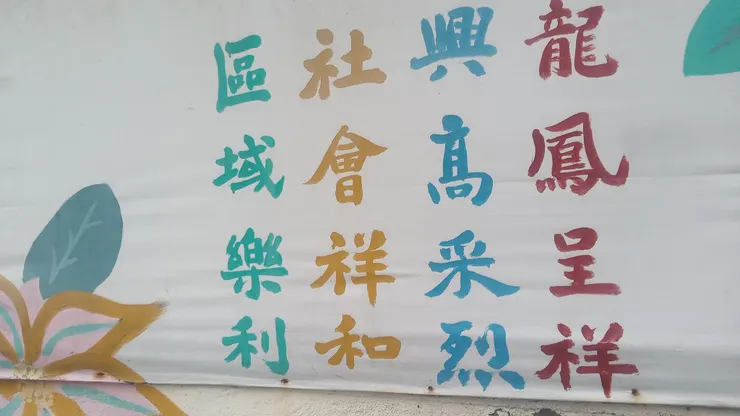 龍鳳呈祥
興高采烈
社會祥和
區域樂利